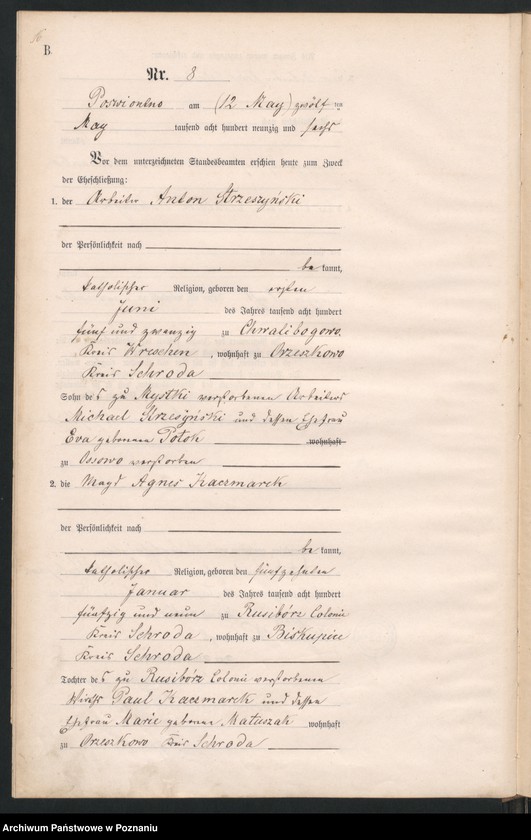 B.
Nr. 8
am (12 May) zwölften
May tausend acht hundert neunzig und sechs
Vor dem unterzeichneten Standesbeamten erschien heute zum Zweck
der Eheschließung:
1. der Arbeiter Anton Strzeszyński
der Persönlichkeit nach
be kannt,
katholischer Religion, geboren den ersten
Juni des Jahres tausend acht hundert
fünf und zwanzig zu Chwalibogowo
Kreis Wreschen, wohnhaft zu Orzeszkowo
Kreis Schroda
Sohn des zu Mystki verstorbenen Arbeiters
Michael Strzeszyński und dessen Ehefrau
Eva geborenen Potok wohnhaft
zu Ossowo verstorben
2. die Magd Agnes Kaczmarek
der Persönlichkeit nach
be kannt,
katholischer Religion, geboren den fünfzehnten
Januar des Jahres tausend acht hundert
fünfzig und neun zu Rusibórz Colonie
Kreis Schroda, wohnhaft zu Biskupice
Kreis Schroda
Tochter des zu Rusibórz Colonie verstorbenen
Wirths Paul Kaczmarek und dessen
Ehefrau Marie geborene Matuszak wohnhaft
zu Orzeszkowo Kreis Schroda
Archiwum Państwowe w Poznaniu